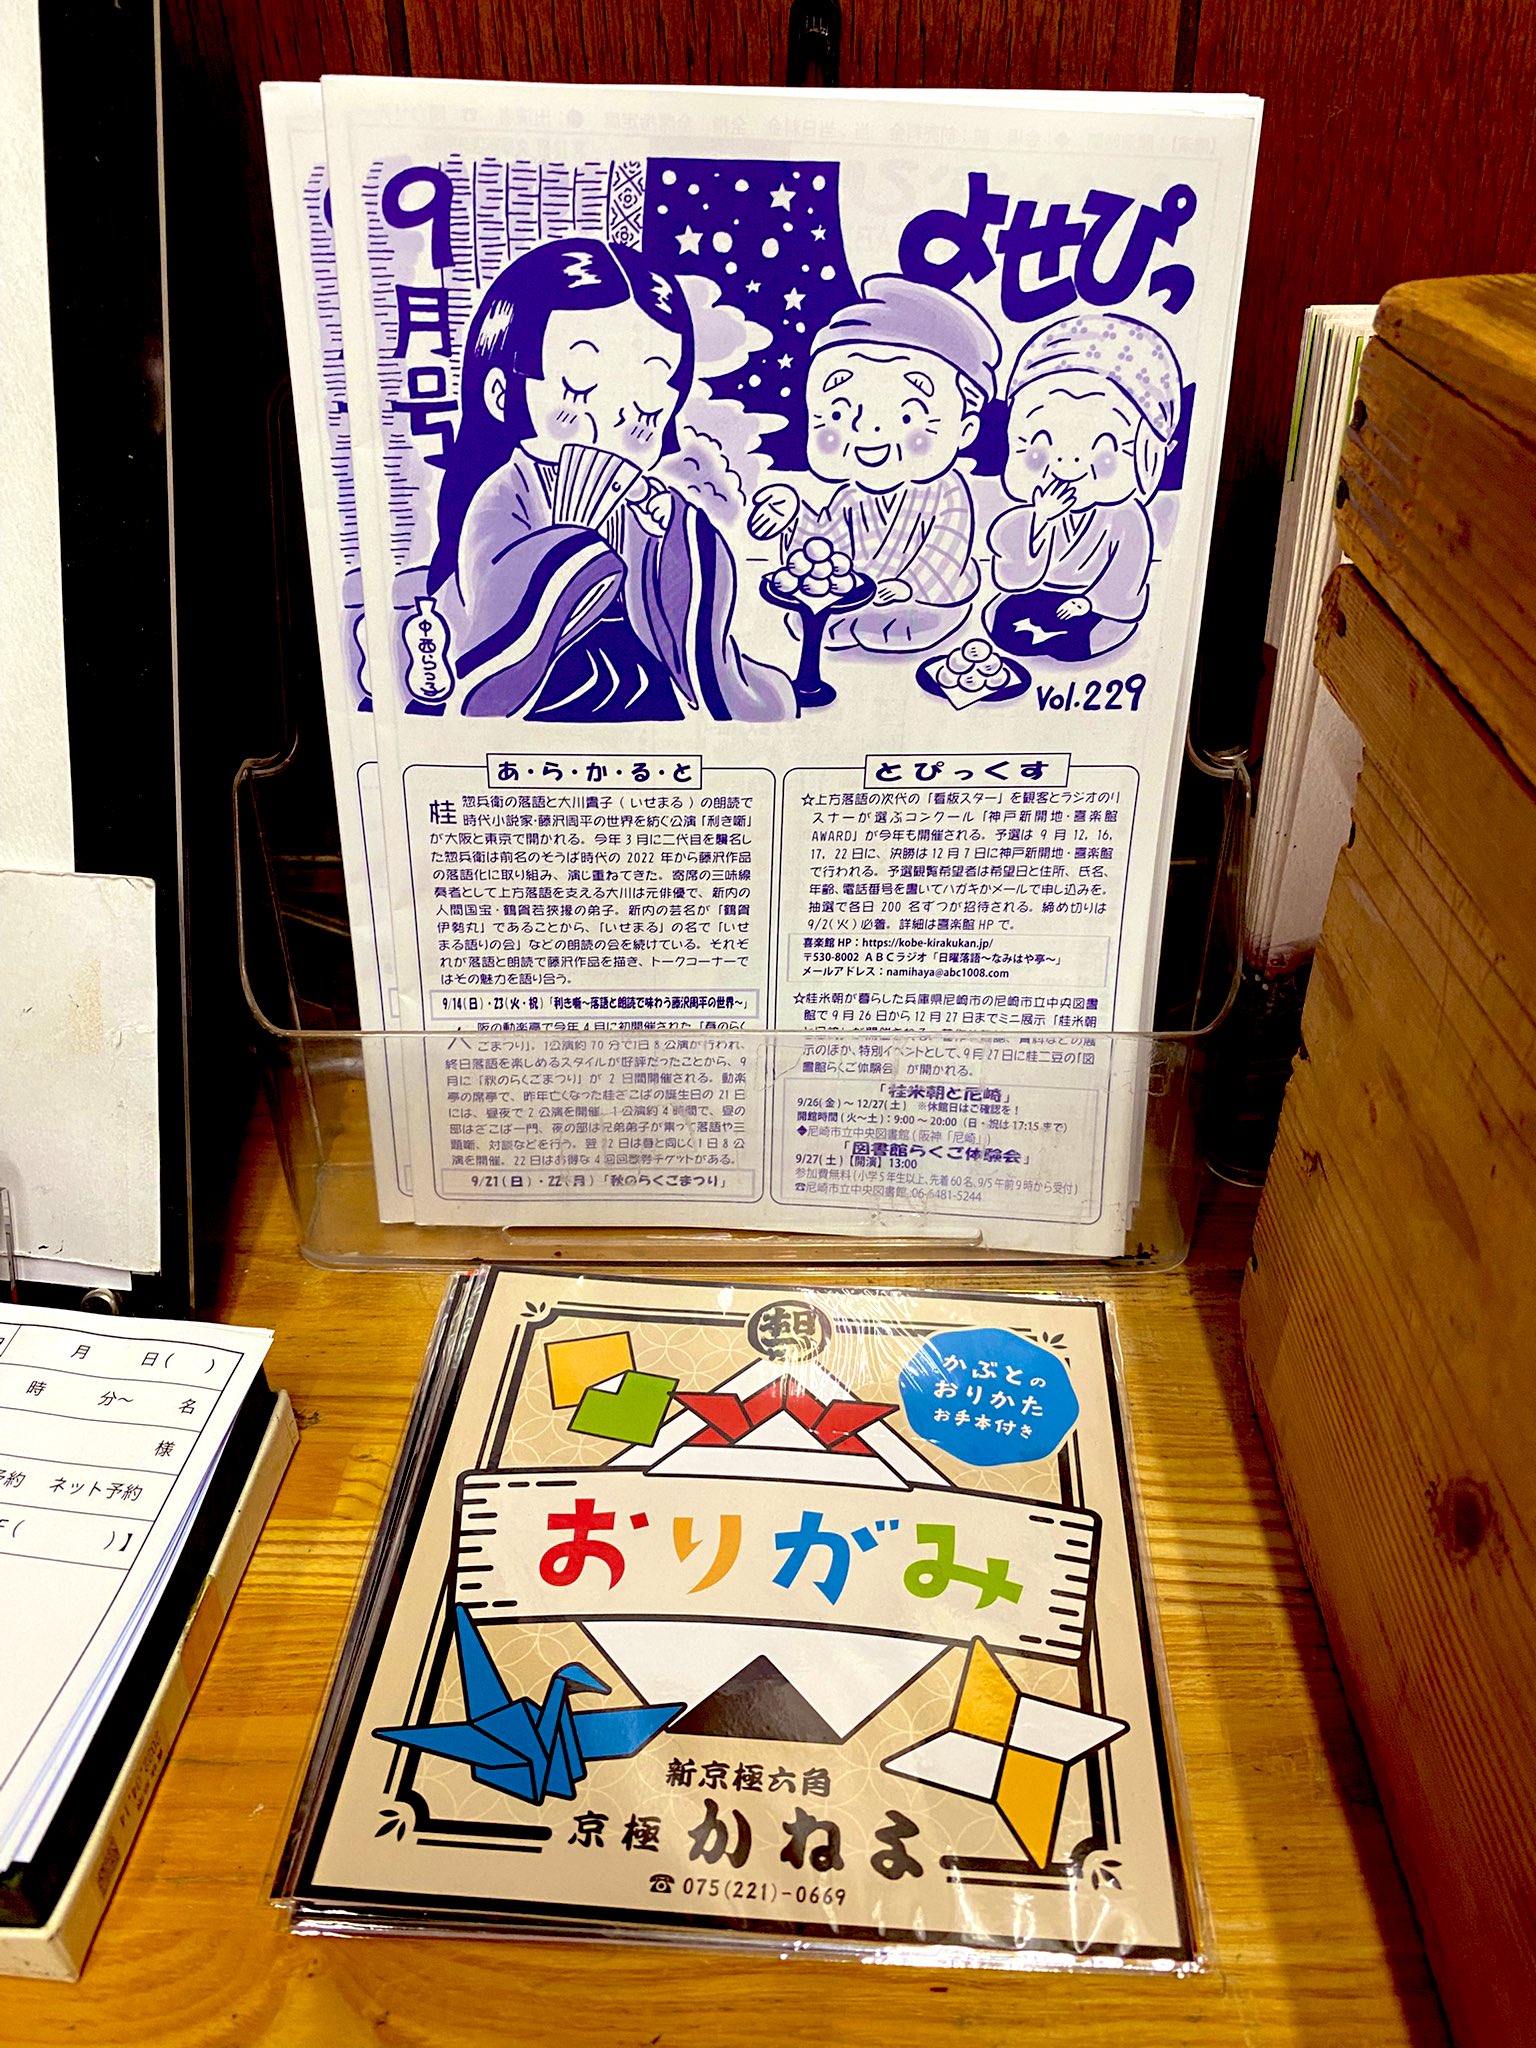 9月号
よせぴっ
中西らつ子
Vol.229
あ・ら・か・る・と
桂惣兵衛の落語と大川貴子(いせまる)の朗読で
時代小説家・藤沢周平の世界を紡ぐ公演「利き噺」
が大阪と東京で開かれる。今年3月に二代目を襲名し
た惣兵衛は前名のそうば時代の2022年から藤沢作品
の落語化に取り組み、演じ重ねてきた。寄席の三味線
奏者として上方落語を支える大川は元俳優で、新内の
人間国宝・鶴賀若狭掾の弟子。新内の芸名が「鶴賀
伊勢丸」であることから、「いせまる」の名で「いせ
まる語りの会」などの朗読の会を続けている。それぞ
れが落語と朗読で藤沢作品を描き、トークコーナーで
はその魅力を語り合う。
9/14(日)・23(火・祝)「利き噺〜落語と朗読で味わう藤沢周平の世界〜」
大阪の動楽亭で今年4月に初開催された「春のらく
ごまつり」。1公演約70分で1日8公演が行われ、
終日落語を楽しめるスタイルが好評だったことから、9
月に「秋のらくごまつり」が2日間開催される。動楽
亭の席亭で、昨年亡くなった桂ざこばの誕生日の21日
には、昼夜で2公演を開催。1公演約4時間で、昼の
部はざこば一門、夜の部は兄弟弟子が集って落語や三
題噺、対談などを行う。翌22日は春と同じく1日8公
演を開催。22日はお得な4回回数券チケットがある。
9/21(日)・22(月)「秋のらくごまつり」
とぴっくす
☆上方落語の次代の「看板スター」を観客とラジオのリ
スナーが選ぶコンクール「神戸新開地・喜楽館
AWARD」が今年も開催される。予選は9月12,16,
17,22日に、決勝は12月7日に神戸新開地・喜楽館
で行われる。予選観覧希望者は希望日と住所、氏名、
年齢、電話番号を書いてハガキかメールで申し込みを。
抽選で各日200名ずつが招待される。締め切りは
9/2(火)必着。詳細は喜楽館HPで。
喜楽館HP:https://kobe-kirakukan.jp/
〒530-8002 ABCラジオ「日曜落語〜なみはや亭〜」
メールアドレス:namihaya@abc1008.com
☆桂米朝が暮らした兵庫県尼崎市の尼崎市立中央図書
館で9月26日から12月27日までミニ展示「桂米朝
と尼崎」が開催される。
示のほか、特別イベントとして、9月27日に桂二豆の「図
書館らくご体験会」が開かれる。
「桂米朝と尼崎」
9/26(金)〜12/27(土) ※休館日はご確認を!
開館時間(火〜土):9:00〜20:00(日・祝は17:15まで)
◆尼崎市立中央図書館(阪神「尼崎」)
「図書館らくご体験会」
9/27(土)【開演】13:00
参加費無料(小学5年生以上、先着60名、9/5午前9時から受付)
☎尼崎市立中央図書館:06-6481-5244
月 日( )
時 分〜 名
様
予約 ネット予約
( )】
かぶとの
おりかた
お手本付き
おりがみ
新京極六角
京極 かねよ
☎075(221)-0669